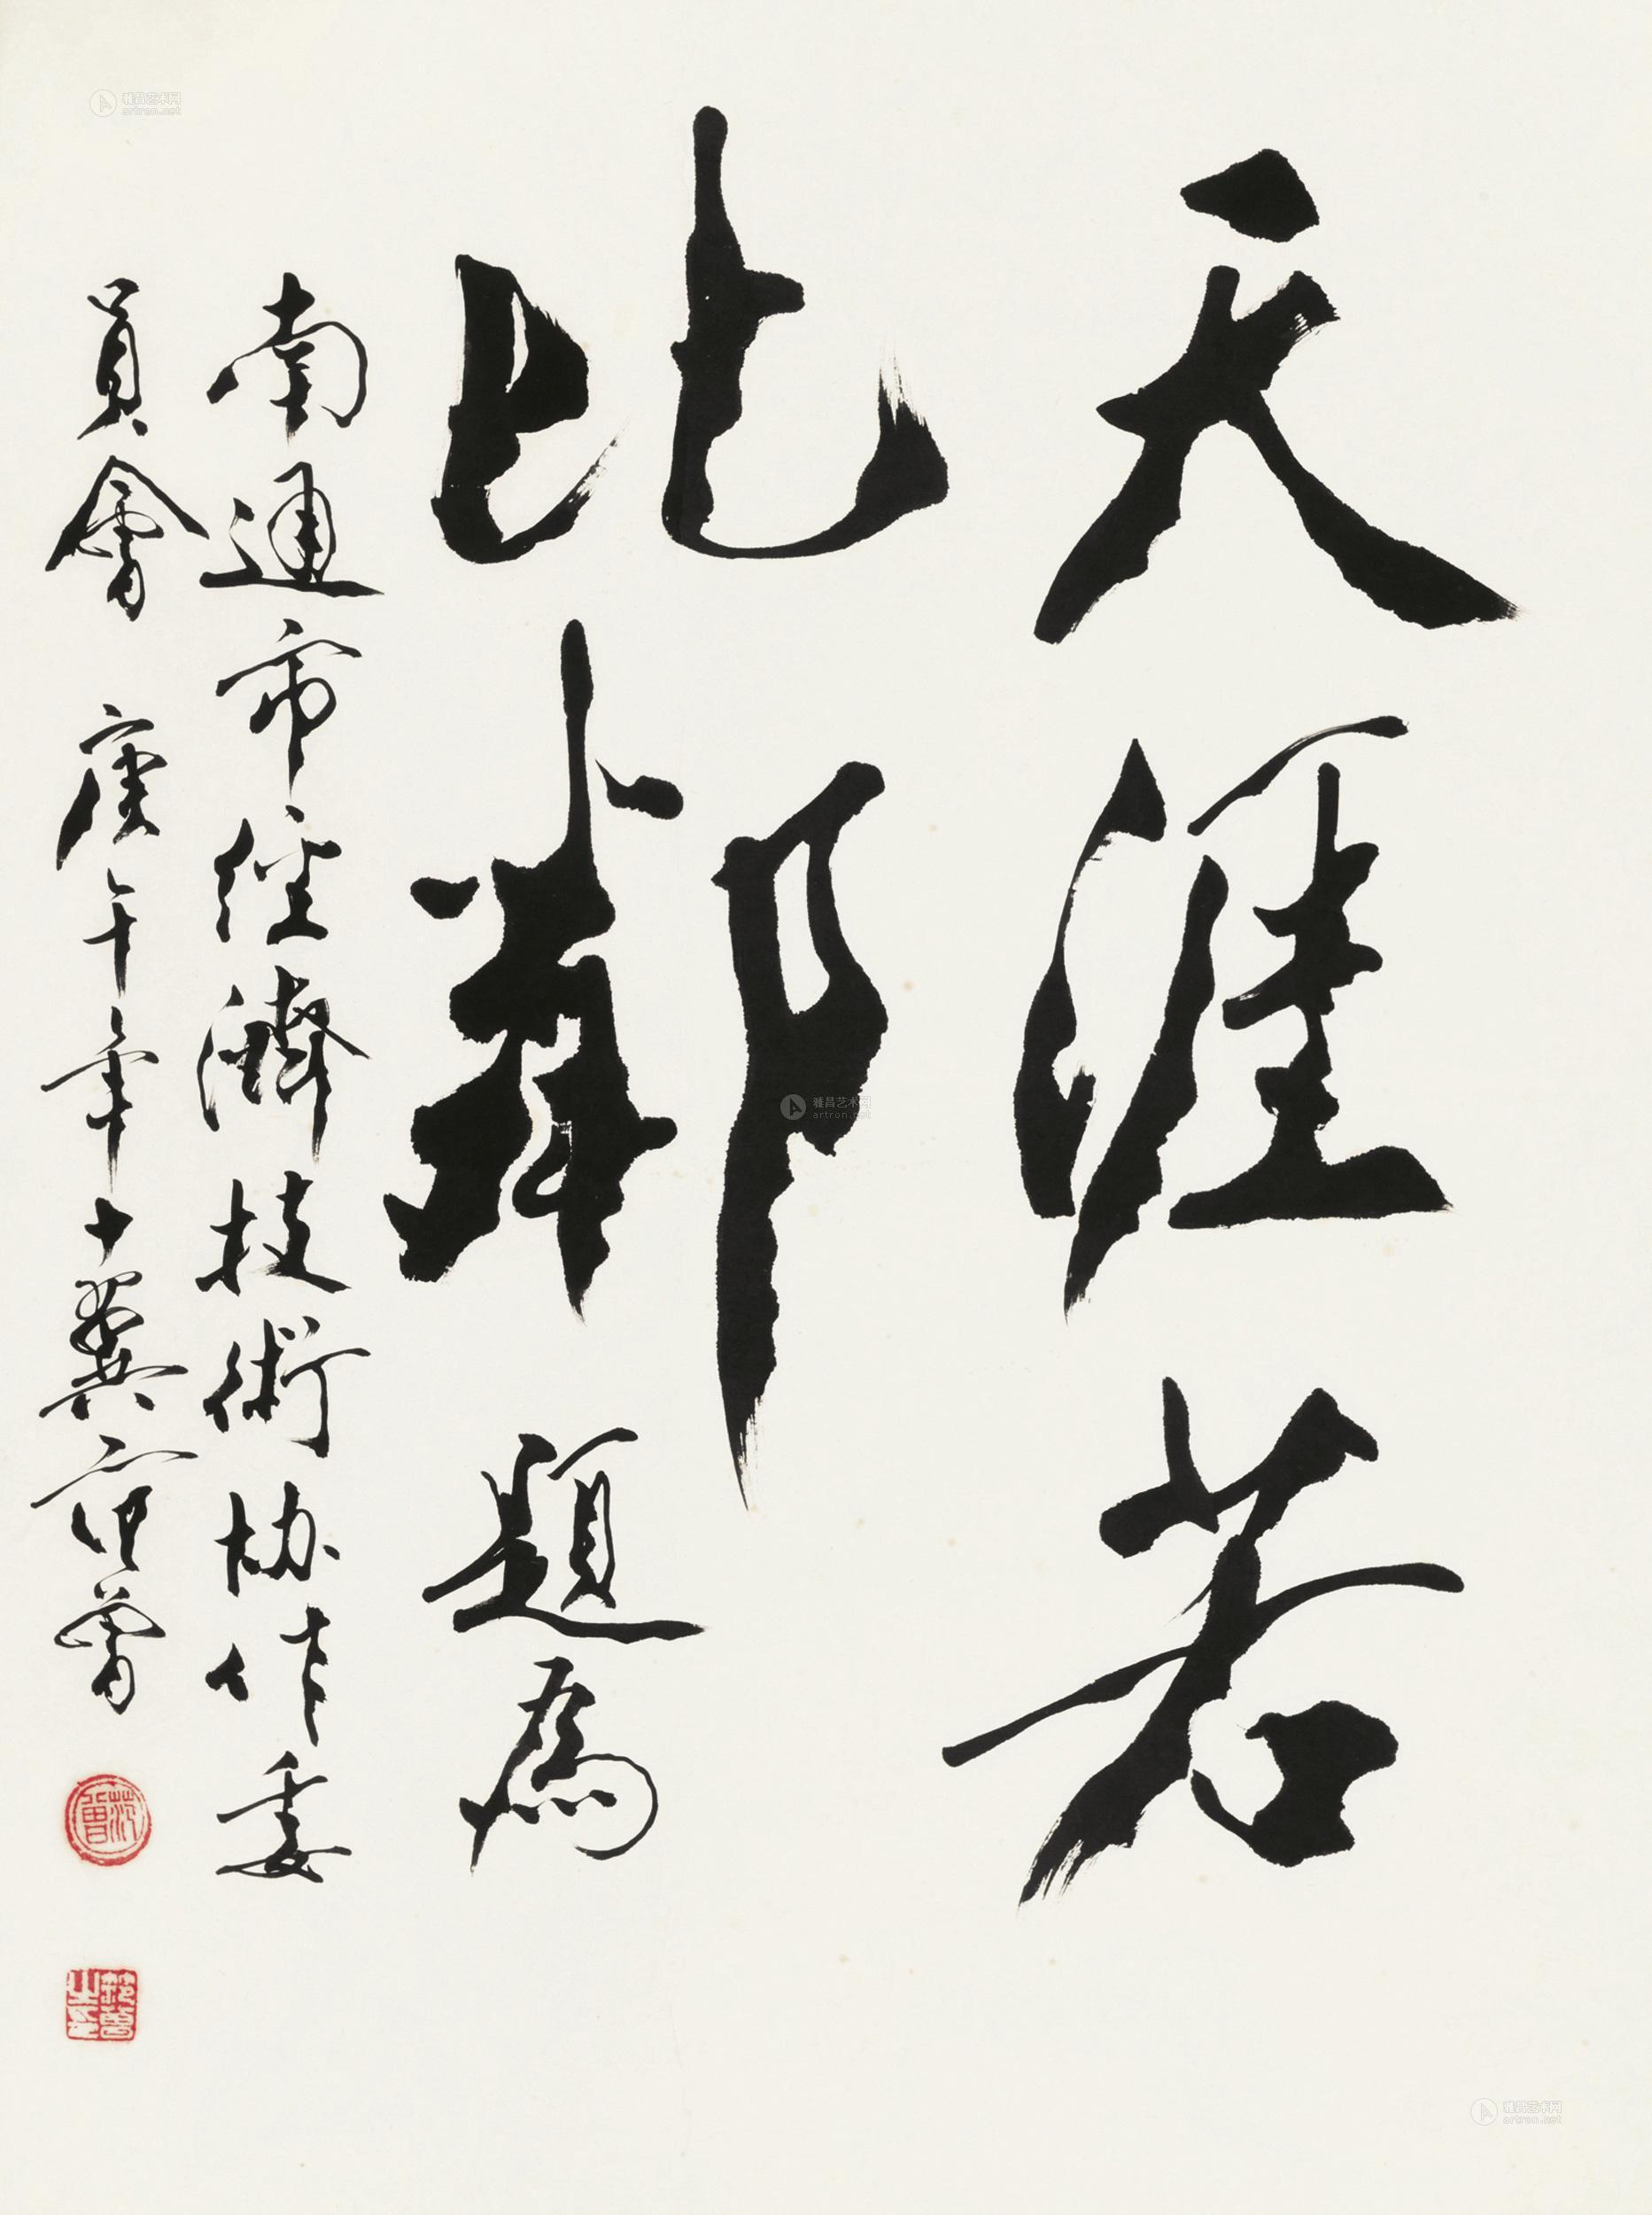 天涯若
比鄰 題爲
南通市經濟技術協作委
員會 庚午年十翼范曾
范曾
范曾之印
雅昌艺术网
artron.net
雅昌艺术网
artron.net
雅昌艺术网
artron.net